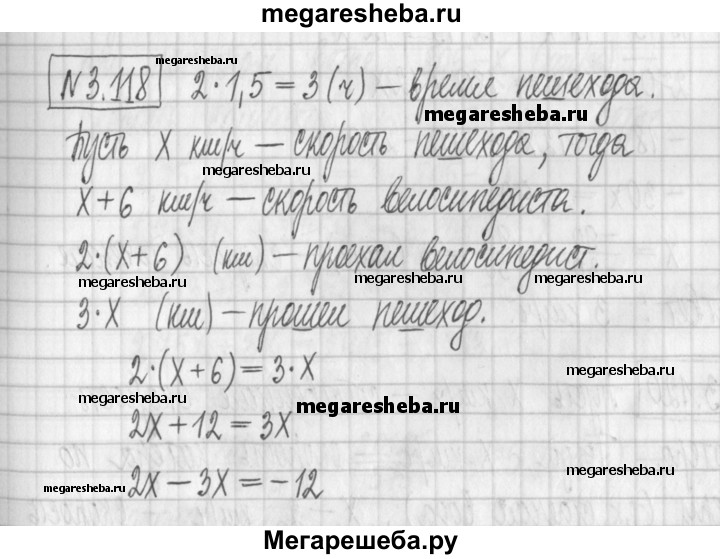 megaresheba.ru
№ 3.118 2·1,5=3(ч) – время пешехода.
megaresheba.ru
Пусть x км/ч – скорость пешехода, тогда
megaresheba.ru
x+6 км/ч – скорость велосипедиста.
2·(x+6) (км) – проехал велосипедист.
megaresheba.ru megaresheba.ru
3·x (км) – прошел пешеход.
2·(x+6)=3·x
megaresheba.ru megaresheba.ru
2x+12=3x
megaresheba.ru
2x–3x=–12
megaresheba.ru
Мегарешеба.ру